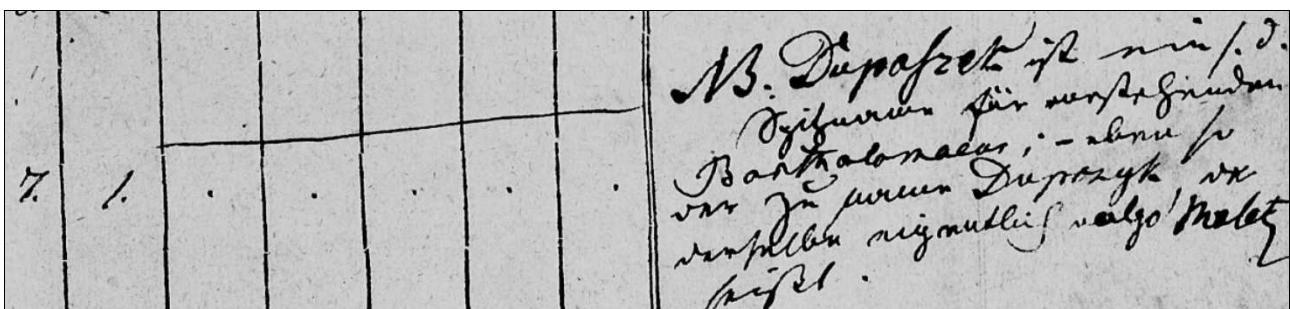 NB. Dupaszek ist ein s. d.
Spitzname für vorstehenden
Bartholomaeus; – eben so
7. 1. . . . . .
der Zuname Dupczyk, da
derselbe eigentlich vulgo Maletz
heißt.